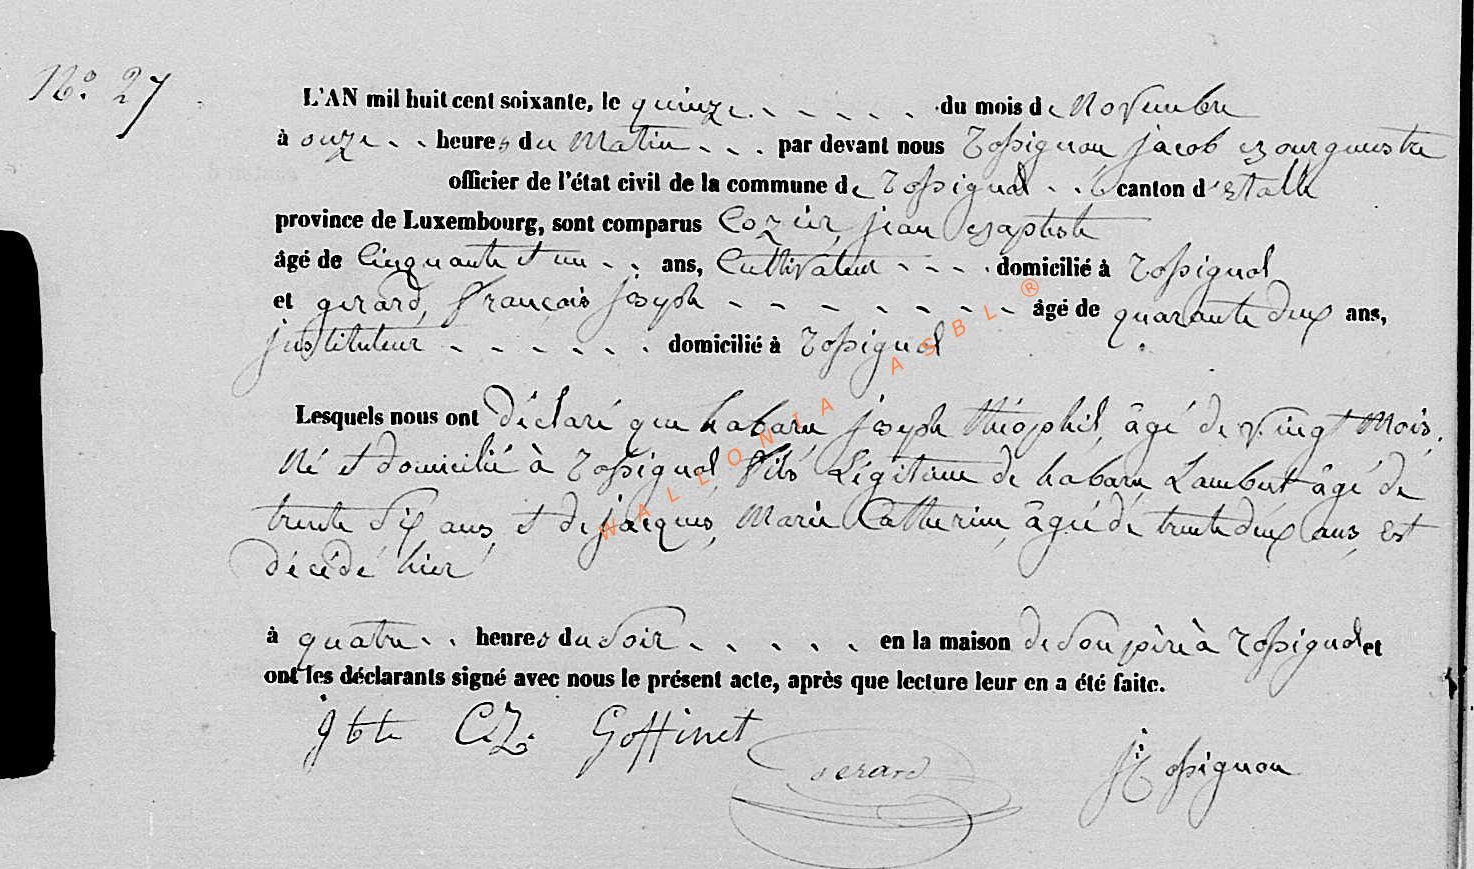 N.º 27
L'AN mil huit cent soixante, le quinze - - - - - du mois de Novembre
à onze - - heures du Matin - - - par devant nous Rossignon jacob Bourguestre
officier de l'état civil de la commune de Rossignol - - canton d'Etalle
province de Luxembourg, sont comparus Cozier, jean Baptiste
âgé de Cinquante et un - - ans, Cultivateur - - - - domicilié à Rossignol
et gerard, françois joseph - - - - - - - - âgé de quarante deux ans,
justituteur - - - - - - domicilié à Rossignol
Lesquels nous ont déclaré que habaru joseph théophil, âgé de vingt Mois,
Né et domicilié à Rossignol, fils Légitime de habaru Lambert âgé de
trente six ans, et de jacques, Marie Catherine, âgée de trente deux ans, est
décédé hier
à quatre - - heures du Soir - - - - - en la maison de Son père à Rossignol et
ont les déclarants signé avec nous le présent acte, après que lecture leur en a été faite.
j bte C.Z. Goffinet
gerard
j Rossignon
WALLONIA ASBL ®